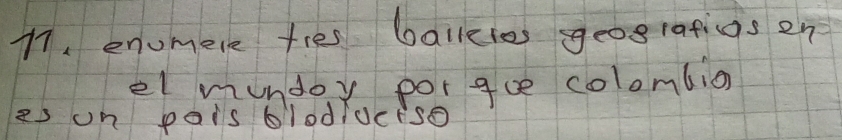 11. enumere tres barreras geograficas en
el mundo y por que colombia
es un pais biodiverso